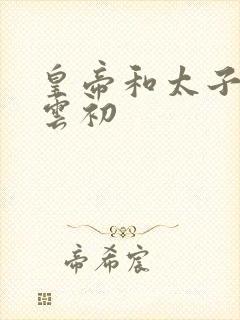 皇帝和太子
雲初
帝希宸